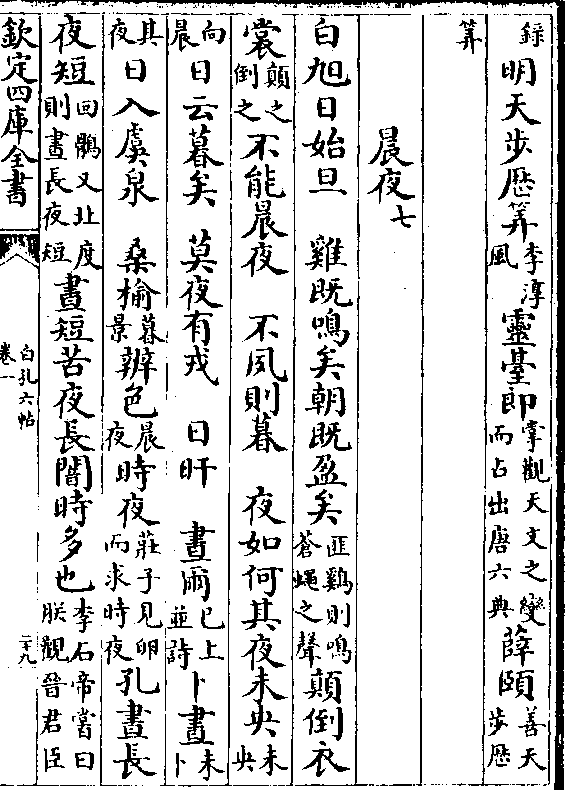 錄明天步厯筭李淳風靈臺郎掌觀天文之變而占出唐六典薛頤善天步厯
筭
晨夜七
白旭日始旦 雞既鳴矣朝既盈矣匪鷄則鳴蒼蠅之聲顛倒衣
裳顛之倒之不能晨夜 不夙則暮 夜如何其夜未央未央
向晨日云暮矣 莫夜有戎 日旰 晝爾已上並詩卜晝未卜
其夜日入虞泉 桑榆暮景辨色晨夜時夜莊子見卵而求時夜孔晝長
夜短回鶻又北度則晝長夜短晝短苦夜長闇時多也李石帝嘗曰朕觀晉君臣
欽定四庫全書
白孔六帖
卷一
二十九